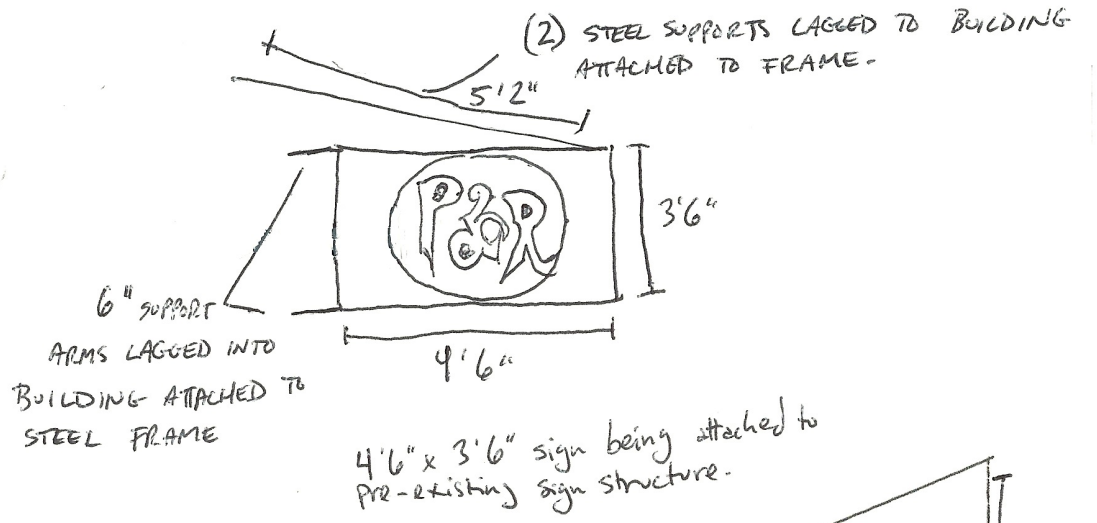 (2) STEEL SUPPORTS LAGGED TO BUILDING
ATTACHED TO FRAME.
5'2"
P&R
3'6"
6" SUPPORT
ARMS LAGGED INTO
BUILDING ATTACHED TO
STEEL FRAME
4'6"
4'6" x 3'6" sign being attached to
pre-existing sign structure.